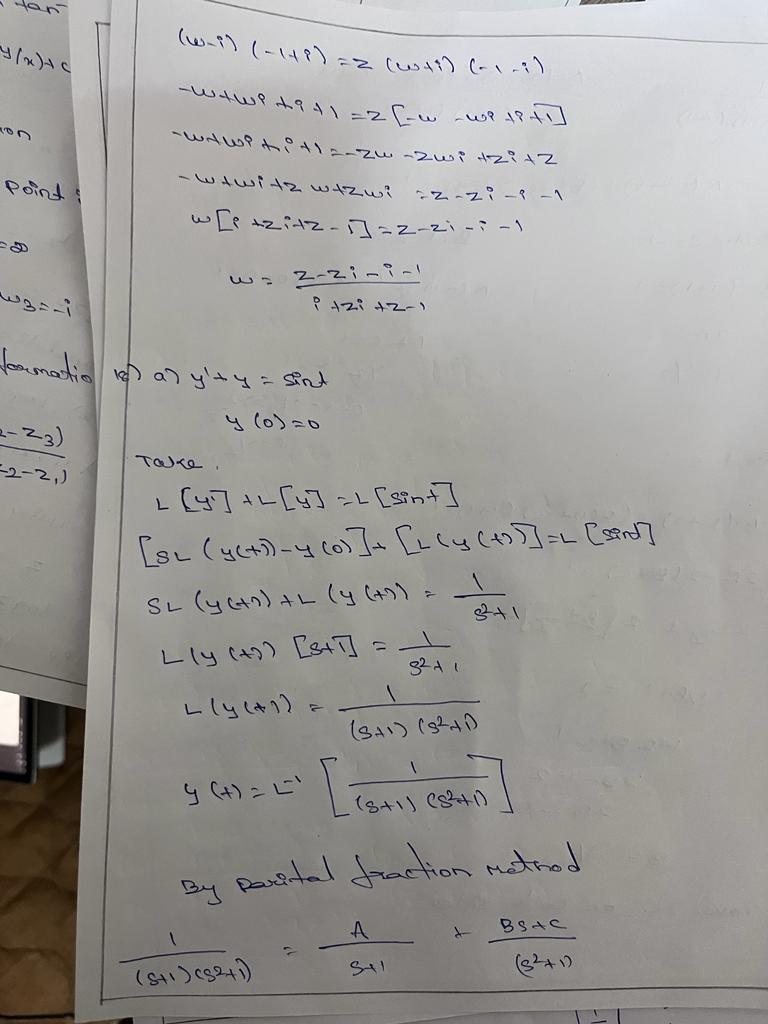 tan
y/x)+c
ion
point :
=∞
w3=-i
formatio
2-z3)
z2-z1)
(w-i) (-1+i) = z (w+i) (-1-i)
-w+wi+i+1 = z [-w -wi+i+1]
-w+wi+i+1 = -zw -zwi +zi+z
-w+wi+z w+zwi = z-zi-i-1
w[i+zi+z-1] = z-zi-i-1
w = z-zi-i-1 / i+zi+z-1
18) a) y'+y = sint
y(0)=0
Take,
L[y']+L[y] = L[sint]
[SL(y(t))-y(0)]+[L(y(t))]=L[sint]
SL(y(t))+L(y(t)) = 1/s²+1
L(y(t)) [s+1] = 1/s²+1
L(y(t)) = 1/(s+1)(s²+1)
y(t) = L⁻¹ [1/(s+1)(s²+1)]
By parital fraction method
1/(s+1)(s²+1) = A/s+1 + Bs+c/(s²+1)